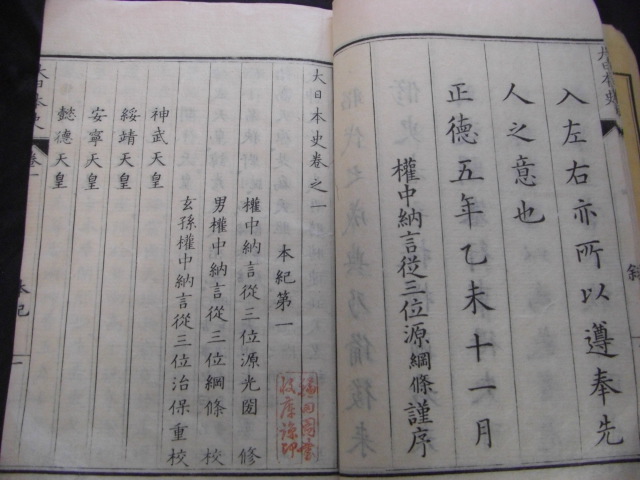 入左右亦所以遵奉先
人之意也
正德五年乙未十一月
權中納言從三位源綱條謹序
大日本史卷之一
本紀第一
權中納言從三位源光圀 修
男權中納言從三位綱條 校
玄孫權中納言從三位治保重校
神武天皇
綏靖天皇
安寧天皇
懿德天皇
大日本史
卷一
本紀
一